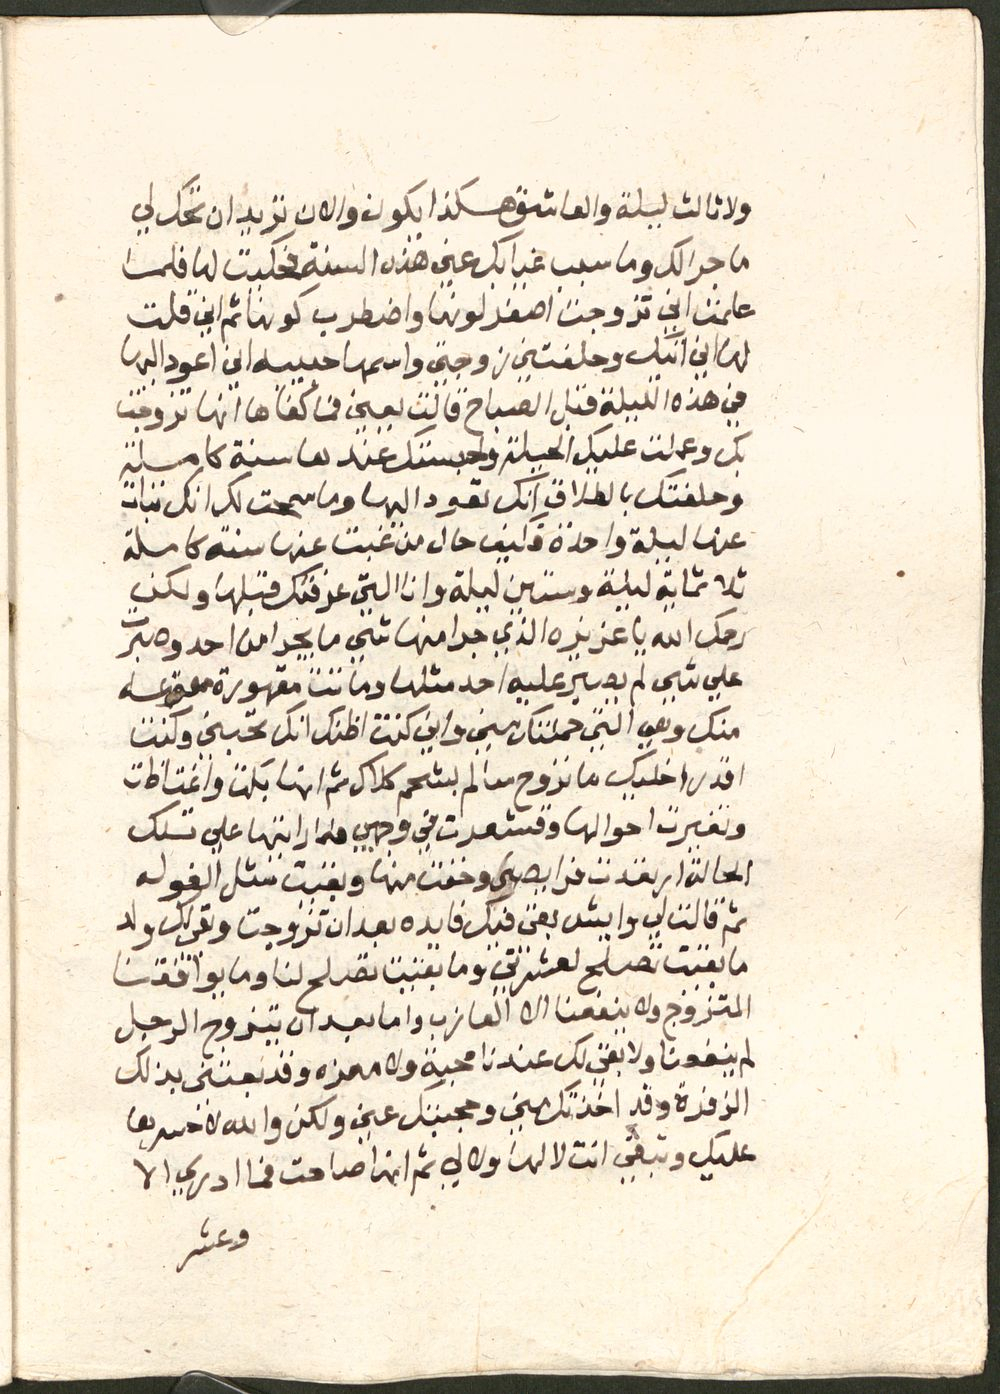 ولا ثالث ليلة والعاشق هكذا يكون والان نريد ان تحك لي
ما جرا لك وما سبب غيابك عني هذه السنة فحكيت لها فلما
علمت اني تزوجت اصفر لونها واضطرب كونها ثم اني قلت
لها اني اتيتك وحلفتني زوجتي واسمها حبيبه اني اعود اليها
في هذه الليلة قبل الصباح قالت يعني فما كفاها انها تزوجت
بك وعملت عليك الحيلة وحبستك عندها سنة كاملة
وحلفتك بالطلاق انك تعود اليها وما سمحت لك انك تبات
عنها ليلة واحدة فكيف حال من غبت عنها سنة كاملة
ثلاثماية ليلة وستين ليلة وانا التي عرفتك قبلها ولكن
رحمك الله يا عزيزه الذي جرا منها شي ما يجرا من احد وصبرت
علي شي لم يصبر عليه احد مثلها وماتت مقهورة
منك وهي التي حمتك مني واني كنت اظنك انك تحبني وكنت
اقدر اخليك ما تروح سالم بشحم كلاك ثم انها بكت واغتاظت
وتغيرت احوالها وقشعرت في وجهي فلما رايتها علي تلك
الحالة ارتعدت فرايصي وخفت منها وبقيت مثل الغوله
ثم قالت لي وايش بقي فيك فايده بعد ان تزوجت وبقي لك ولد
ما بقيت تصلح لعشرتي وما بقيت تصلح لنا وما يوافقنا
المتزوج ولا ينفعنا الا العازب واما بعد ان يتزوج الرجل
لم ينفعنا ولا بقي لك عندنا محبة ولا معزه وقد بعتني بذلك
الزفرة وقد اخذتك مني وحجبتك عني ولكن والله لاحسرها
عليك وتبقي انت لا لها ولا لي ثم انها صاحت فما ادري الا
وعشر